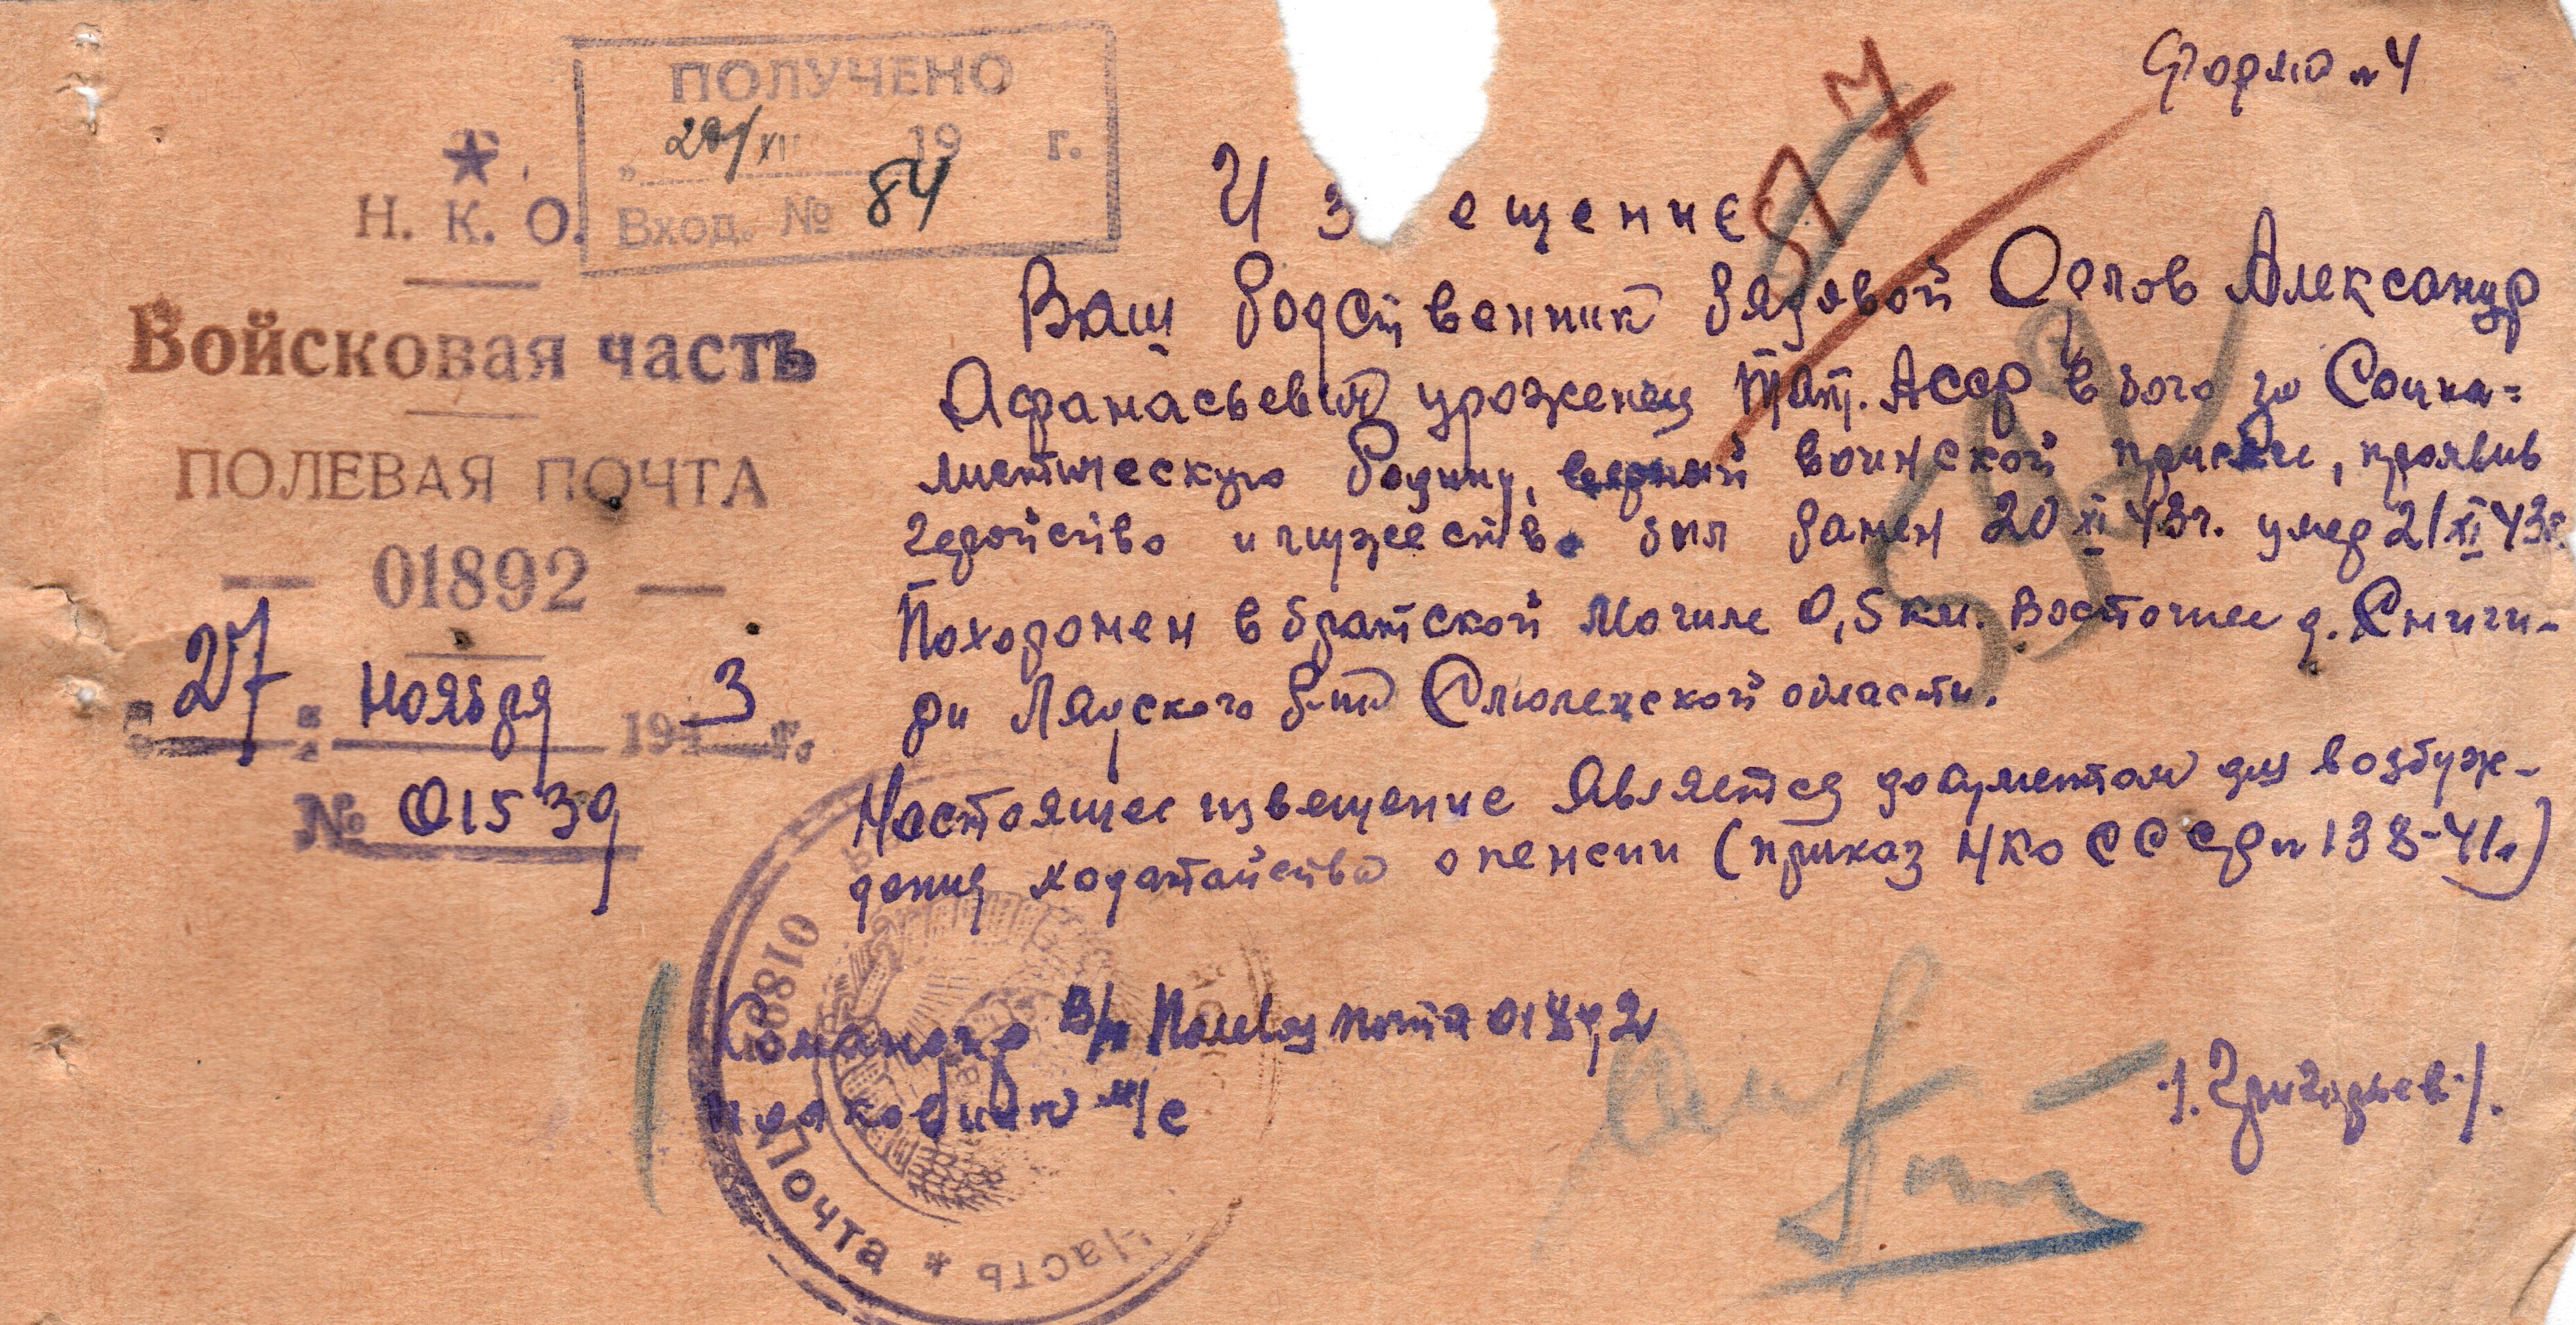 Форма №4
ПОЛУЧЕНО
„ 29/XII 19 г.
Вход. № 84
Н. К. О.
Войсковая часть
ПОЛЕВАЯ ПОЧТА
— 01892 —
„ 27 " ноября 1943 г.
№ 01539
Из ещение
Ваш родственник рядовой Орлов Александр
Афанасьевич уроженец Тат. Асср в бою за Социа-
листическую Родину, верный воинской присяге, проявив
геройство и мужество был ранен 20 XI 43г. умер 21 XI 43г.
Похоронен в братской могиле 0,5 км. восточнее д.
ри р-на Смоленской области.
Настоящее извещение является документом для возбуж-
дения ходатайства о пенсии (приказ НКО СССР № 138-41г)
Командир в/ч Полевая почта 01892
полковник м/с
/. Григорьев /.
01892
Почта * Часть